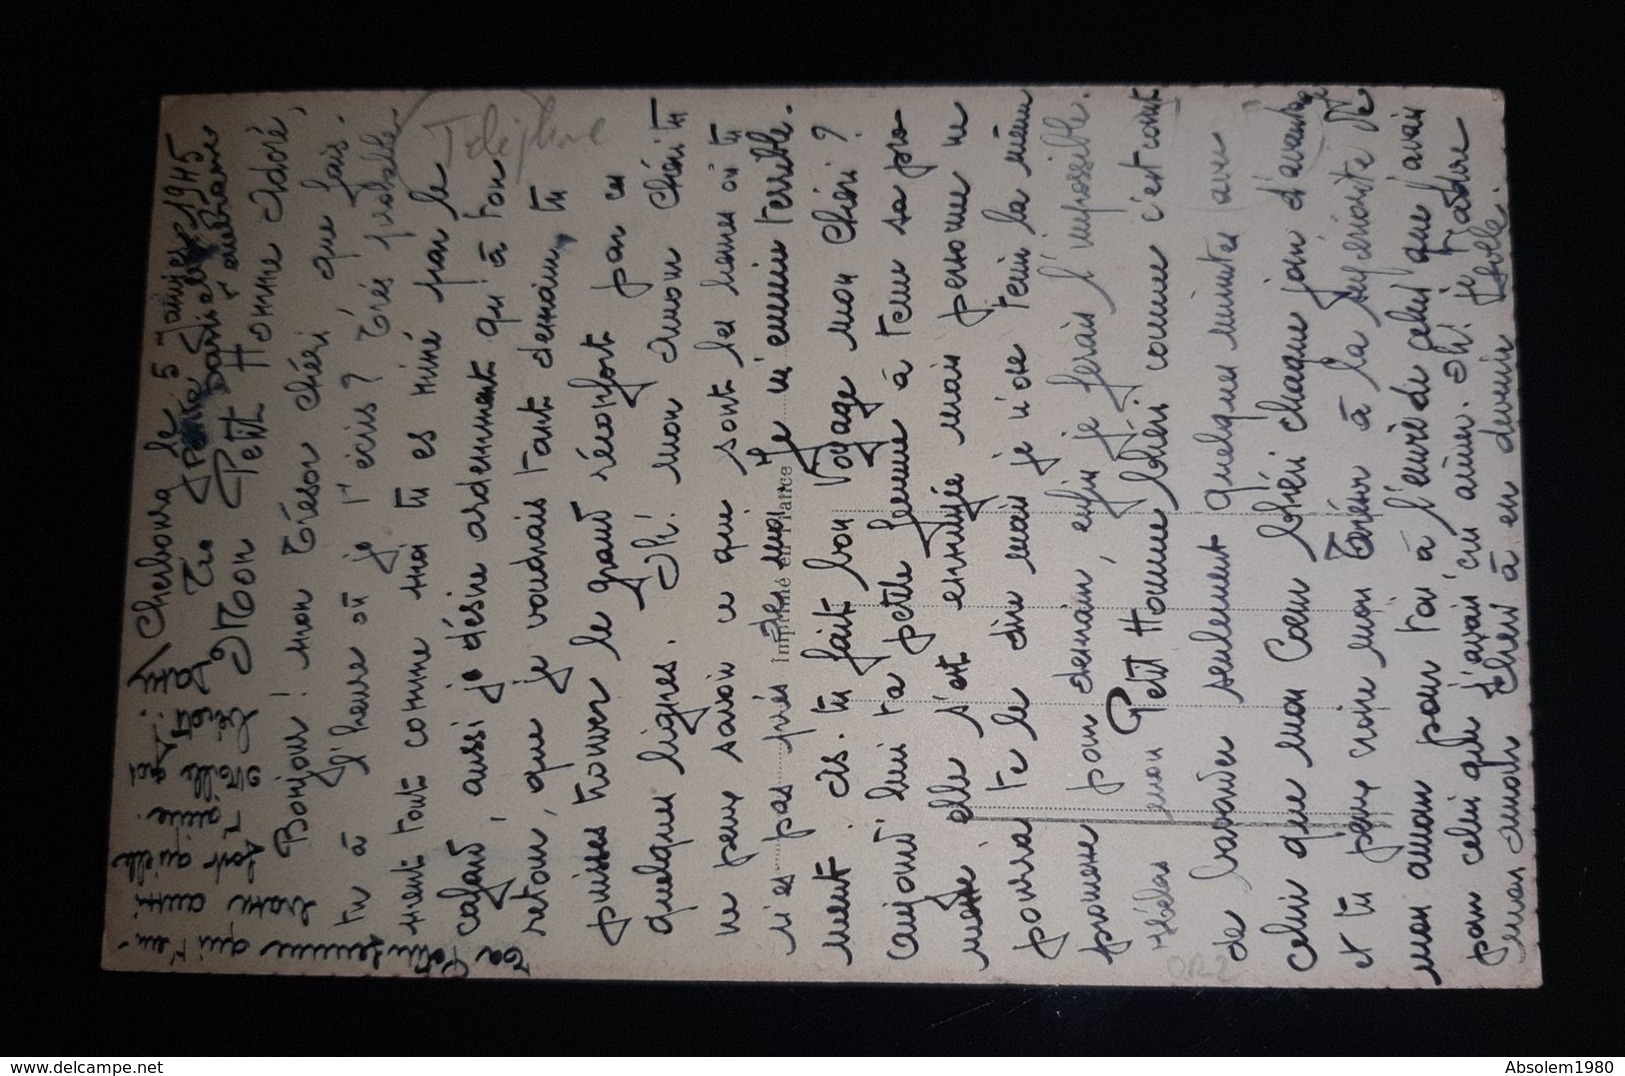 Cherbourg le 5 Janvier 1945
Mon Petit Homme Adoré,
Bonjour ! mon Trésor chéri, que fais-
tu à l'heure où je t'écris ? Très probable-
ment tout comme moi tu es miné par le
cafard, aussi je désire ardemment qu'à ton
retour, que je voudrais tant demain, tu
puisses trouver le grand réconfort par ces
quelques lignes. Oh ! mon Amour chéri tu
ne peux savoir ce que sont les heures où tu
n'es pas près de moi. Je m'ennuie terrible-
ment. As-tu fait bon voyage mon chéri ?
Aujourd'hui ta petite femme a tenu sa pro-
messe, elle s'est ennuyée mais personne ne
pourra te le dire mais je n'ose tenir la même
promesse pour demain, enfin je ferais l'impossible.
Hélas mon Petit Homme chéri comme c'est court
de bavarder seulement quelques minutes avec
celui que mon Cœur chéri chaque jour d'avantage
et tu peux croire mon Trésor à la sincérité de
mon amour pour toi à l'envers de celui que j'avais
pour celui que j'avais cru aimer. Oh ! je t'adore
mon amour chéri à en devenir folle.
Ta Petite femme qui t'en-
Téléphone
Imprimé en France
delcampe.net
Absolem1980